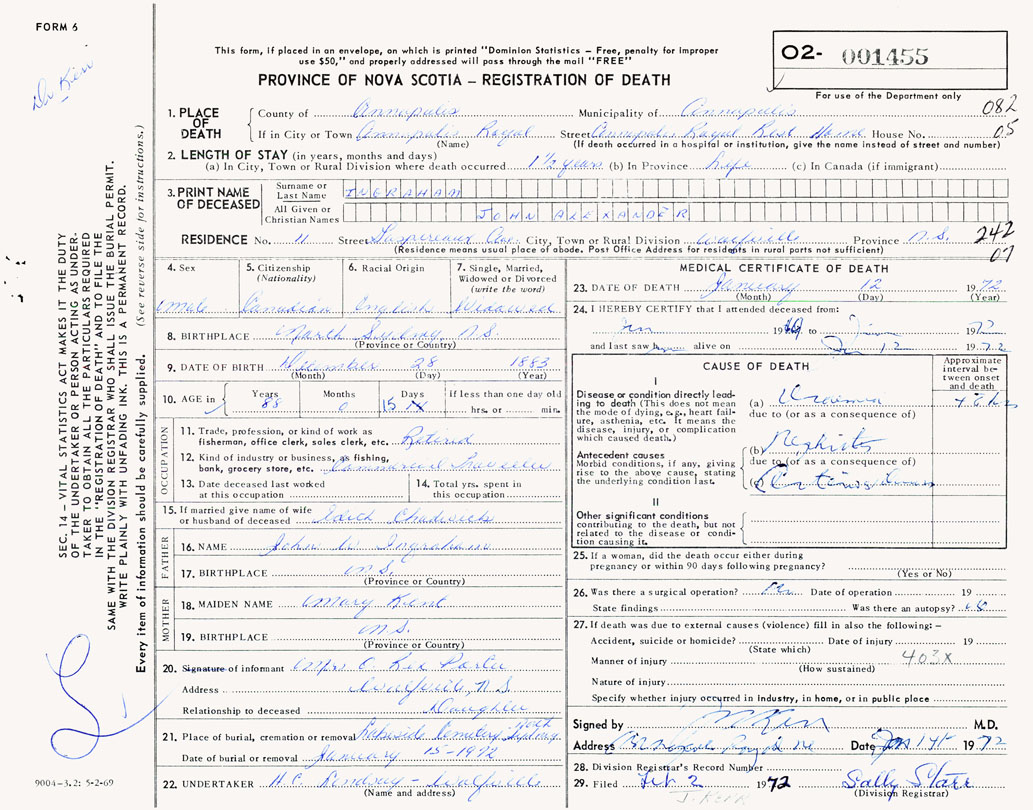 FORM 6
Dr Kerr
This form, if placed in an envelope, on which is printed "Dominion Statistics – Free, penalty for improper
use $50," and properly addressed will pass through the mail "FREE"
PROVINCE OF NOVA SCOTIA – REGISTRATION OF DEATH
O2- 001455
For use of the Department only
082
05
1. PLACE OF DEATH
County of Annapolis Municipality of Annapolis
If in City or Town Annapolis Royal Street Annapolis Royal Rest Home House No.
(Name) (If death occurred in a hospital or institution, give the name instead of street and number)
2. LENGTH OF STAY (in years, months and days)
(a) In City, Town or Rural Division where death occurred 1½ years (b) In Province life (c) In Canada (if immigrant)
3. PRINT NAME OF DECEASED
Surname or Last Name INGRAHAM
All Given or Christian Names JOHN ALEXANDER
RESIDENCE No. 11 Street Gaspereaux Ave. City, Town or Rural Division Wolfville Province N.S.
(Residence means usual place of abode. Post Office Address for residents in rural parts not sufficient)
242
07
4. Sex
male
5. Citizenship (Nationality)
Canadian
6. Racial Origin
English
7. Single, Married, Widowed or Divorced (write the word)
Widowed
8. BIRTHPLACE North Sydney, N.S.
(Province or Country)
9. DATE OF BIRTH December 28 1883
(Month) (Day) (Year)
10. AGE in Years 88 Months 0 Days 15 If less than one day old
hrs. or min.
OCCUPATION
11. Trade, profession or kind of work as
fisherman, office clerk, sales clerk, etc. Retired
12. Kind of industry or business, as fishing,
bank, grocery store, etc. Commercial Traveller
13. Date deceased last worked
at this occupation
14. Total yrs. spent in
this occupation
15. If married give name of wife
or husband of deceased Edith Chadwick
FATHER
16. NAME John W Ingraham
17. BIRTHPLACE N.S.
(Province or Country)
MOTHER
18. MAIDEN NAME Mary Kent
19. BIRTHPLACE N.S.
(Province or Country)
20. Signature of informant Mrs O Rex Porter
Address Wolfville, N.S.
Relationship to deceased Daughter
21. Place of burial, cremation or removal Lakeside Cemetery North Sydney
Date of burial or removal January 15-1972
22. UNDERTAKER H.C. Lindsay – Wolfville
(Name and address)
MEDICAL CERTIFICATE OF DEATH
23. DATE OF DEATH January 12 1972
(Month) (Day) (Year)
24. I HEREBY CERTIFY that I attended deceased from:
Jan 19 to Jan 1972
and last saw h alive on Jan 12 1972
CAUSE OF DEATH
Approximate interval between onset and death
I
Disease or condition directly leading to death (This does not mean the mode of dying, e.g., heart failure, asthenia, etc. It means the disease, injury, or complication which caused death.)
(a) Uraemia 48 hrs
due to (or as a consequence of)
Antecedent causes
Morbid conditions, if any, giving rise to the above cause, stating the underlying condition last.
(b) Nephritis
due to (or as a consequence of)
(c)
II
Other significant conditions contributing to the death, but not related to the disease or condition causing it.
25. If a woman, did the death occur either during
pregnancy or within 90 days following pregnancy?
(Yes or No)
26. Was there a surgical operation? no Date of operation 19
State findings Was there an autopsy?
27. If death was due to external causes (violence) fill in also the following: –
Accident, suicide or homicide? Date of injury 19
(State which)
Manner of injury 403X
(How sustained)
Nature of injury
Specify whether injury occurred in industry, in home, or in public place
Signed by Kerr M.D.
Address Annapolis Royal NS Date Jan 14 1972
28. Division Registrar's Record Number
29. Filed Feb 2 1972 Sally Starr
(Division Registrar)
J. Kerr
SEC. 14 – VITAL STATISTICS ACT MAKES IT THE DUTY
OF THE UNDERTAKER OR PERSON ACTING AS UNDER-
TAKER TO OBTAIN ALL THE PARTICULARS REQUIRED
IN THE "REGISTRATION OF DEATH" AND TO FILE THE
SAME WITH THE DIVISION REGISTRAR WHO SHALL ISSUE THE BURIAL PERMIT.
WRITE PLAINLY WITH UNFADING INK. THIS IS A PERMANENT RECORD.
Every item of information should be carefully supplied. (See reverse side for instructions.)
9004-3.2: 5-2-69